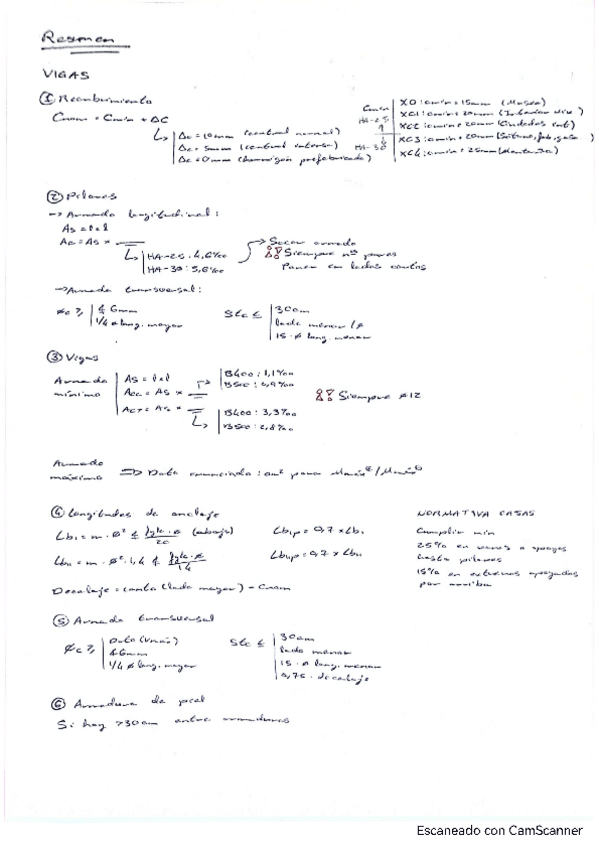 Resumen
VIGAS
① Recubrimiento
Cnom = Cmin + ΔC
Δc = 10mm (control normal)
Δc = 5mm (control intenso)
Δc = 0mm (hormigón prefabricado)
Cmin
HA-25
HA-30
X0: cmin = 15mm (Museo)
XC1: cmin = 20mm (Interior
XC2: cmin = 20mm
XC3: cmin = 20mm
XC4: cmin = 25mm
② Pilares
→ Armado longitudinal:
As = l·l
Ac = As ×
HA-25: 4,6‰
HA-30: 5,6‰
Sacar armado
Siempre nº pares
Poner en lados cortos
→ Armado transversal:
6mm
1/4 ø long. mayor
Stc ≤
30cm
lado menor
15·ø long. menor
③ Vigas
Armado
mínimo
As = l·l
Acc = As ×
Act = As ×
B400: 1,1‰
B500: 0,9‰
B400: 3,3‰
B500: 2,8‰
Siempre ø12
Armado
máximo
⇒ Dato enunciado: cm² para
④ Longitudes de anclaje
Lb₁ = m·ø² ≮ fyk·ø/20 (abajo)
Lb₂ = m·ø²·1,4 ≮ fyk·ø/14
Lb₁p = 0,7 × Lb₁
Decalaje = canto (lado mayor) - Cnom
NORMATIVA CASAS
Cumplir min
25% en vanos a apoyos
hasta pilares
15% en extremos apoyados
por arriba
⑤ Armado transversal
Dato
6mm
1/4 ø long. mayor
Stc ≤
30cm
lado menor
15·ø long. menor
0,75·decalaje
⑥ Armadura de piel
Si hay >30cm entre armaduras
Escaneado con CamScanner